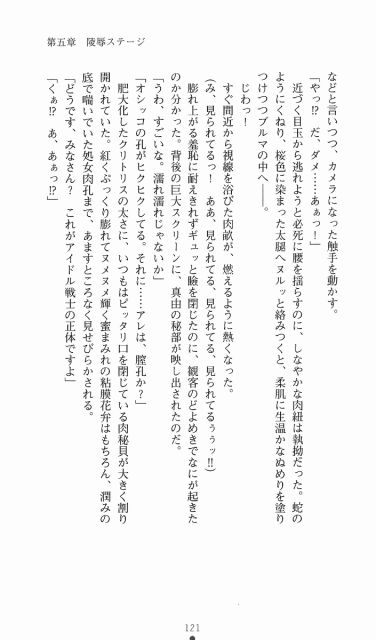 第五章　陵辱ステージ
などと言いつつ、カメラになった触手を動かす。
「やっ!?　だ、ダメ……あぁっ！」
近づく目玉から逃れようと必死に腰を揺らすのに、しなやかな肉紐は執拗だった。蛇の
ようにくねり、桜色に染まった太腿へヌルッと絡みつくと、柔肌に生温かなぬめりを塗り
つけつつブルマの中へ――。
じわっ！
すぐ間近から視線を浴びた肉畝が、燃えるように熱くなった。
(み、見られてるっ！　ああ、見られてる、見られてる、見られてるぅぅッ!!)
膨れ上がる羞恥に耐えきれずギュッと瞼を閉じたのに、観客のどよめきでなにが起きた
のか分かった。背後の巨大スクリーンに、真由の秘部が映し出されたのだ。
「うわ、すごいな。濡れ濡れじゃないか」
「オシッコの孔がヒクヒクしてる。それに……アレは、膣孔か？」
肥大化したクリトリスの太さに、いつもはピッタリ口を閉じている肉秘貝が大きく割り
開かれていた。紅くぷっくり膨れてヌメヌメ輝く蜜まみれの粘膜花弁はもちろん、潤みの
底で喘いでいた処女肉孔まで、あますところなく見せびらかされる。
「どうです、みなさん？　これがアイドル戦士の正体ですよ」
「くぁ!?　あ、あぁっ!?」
121